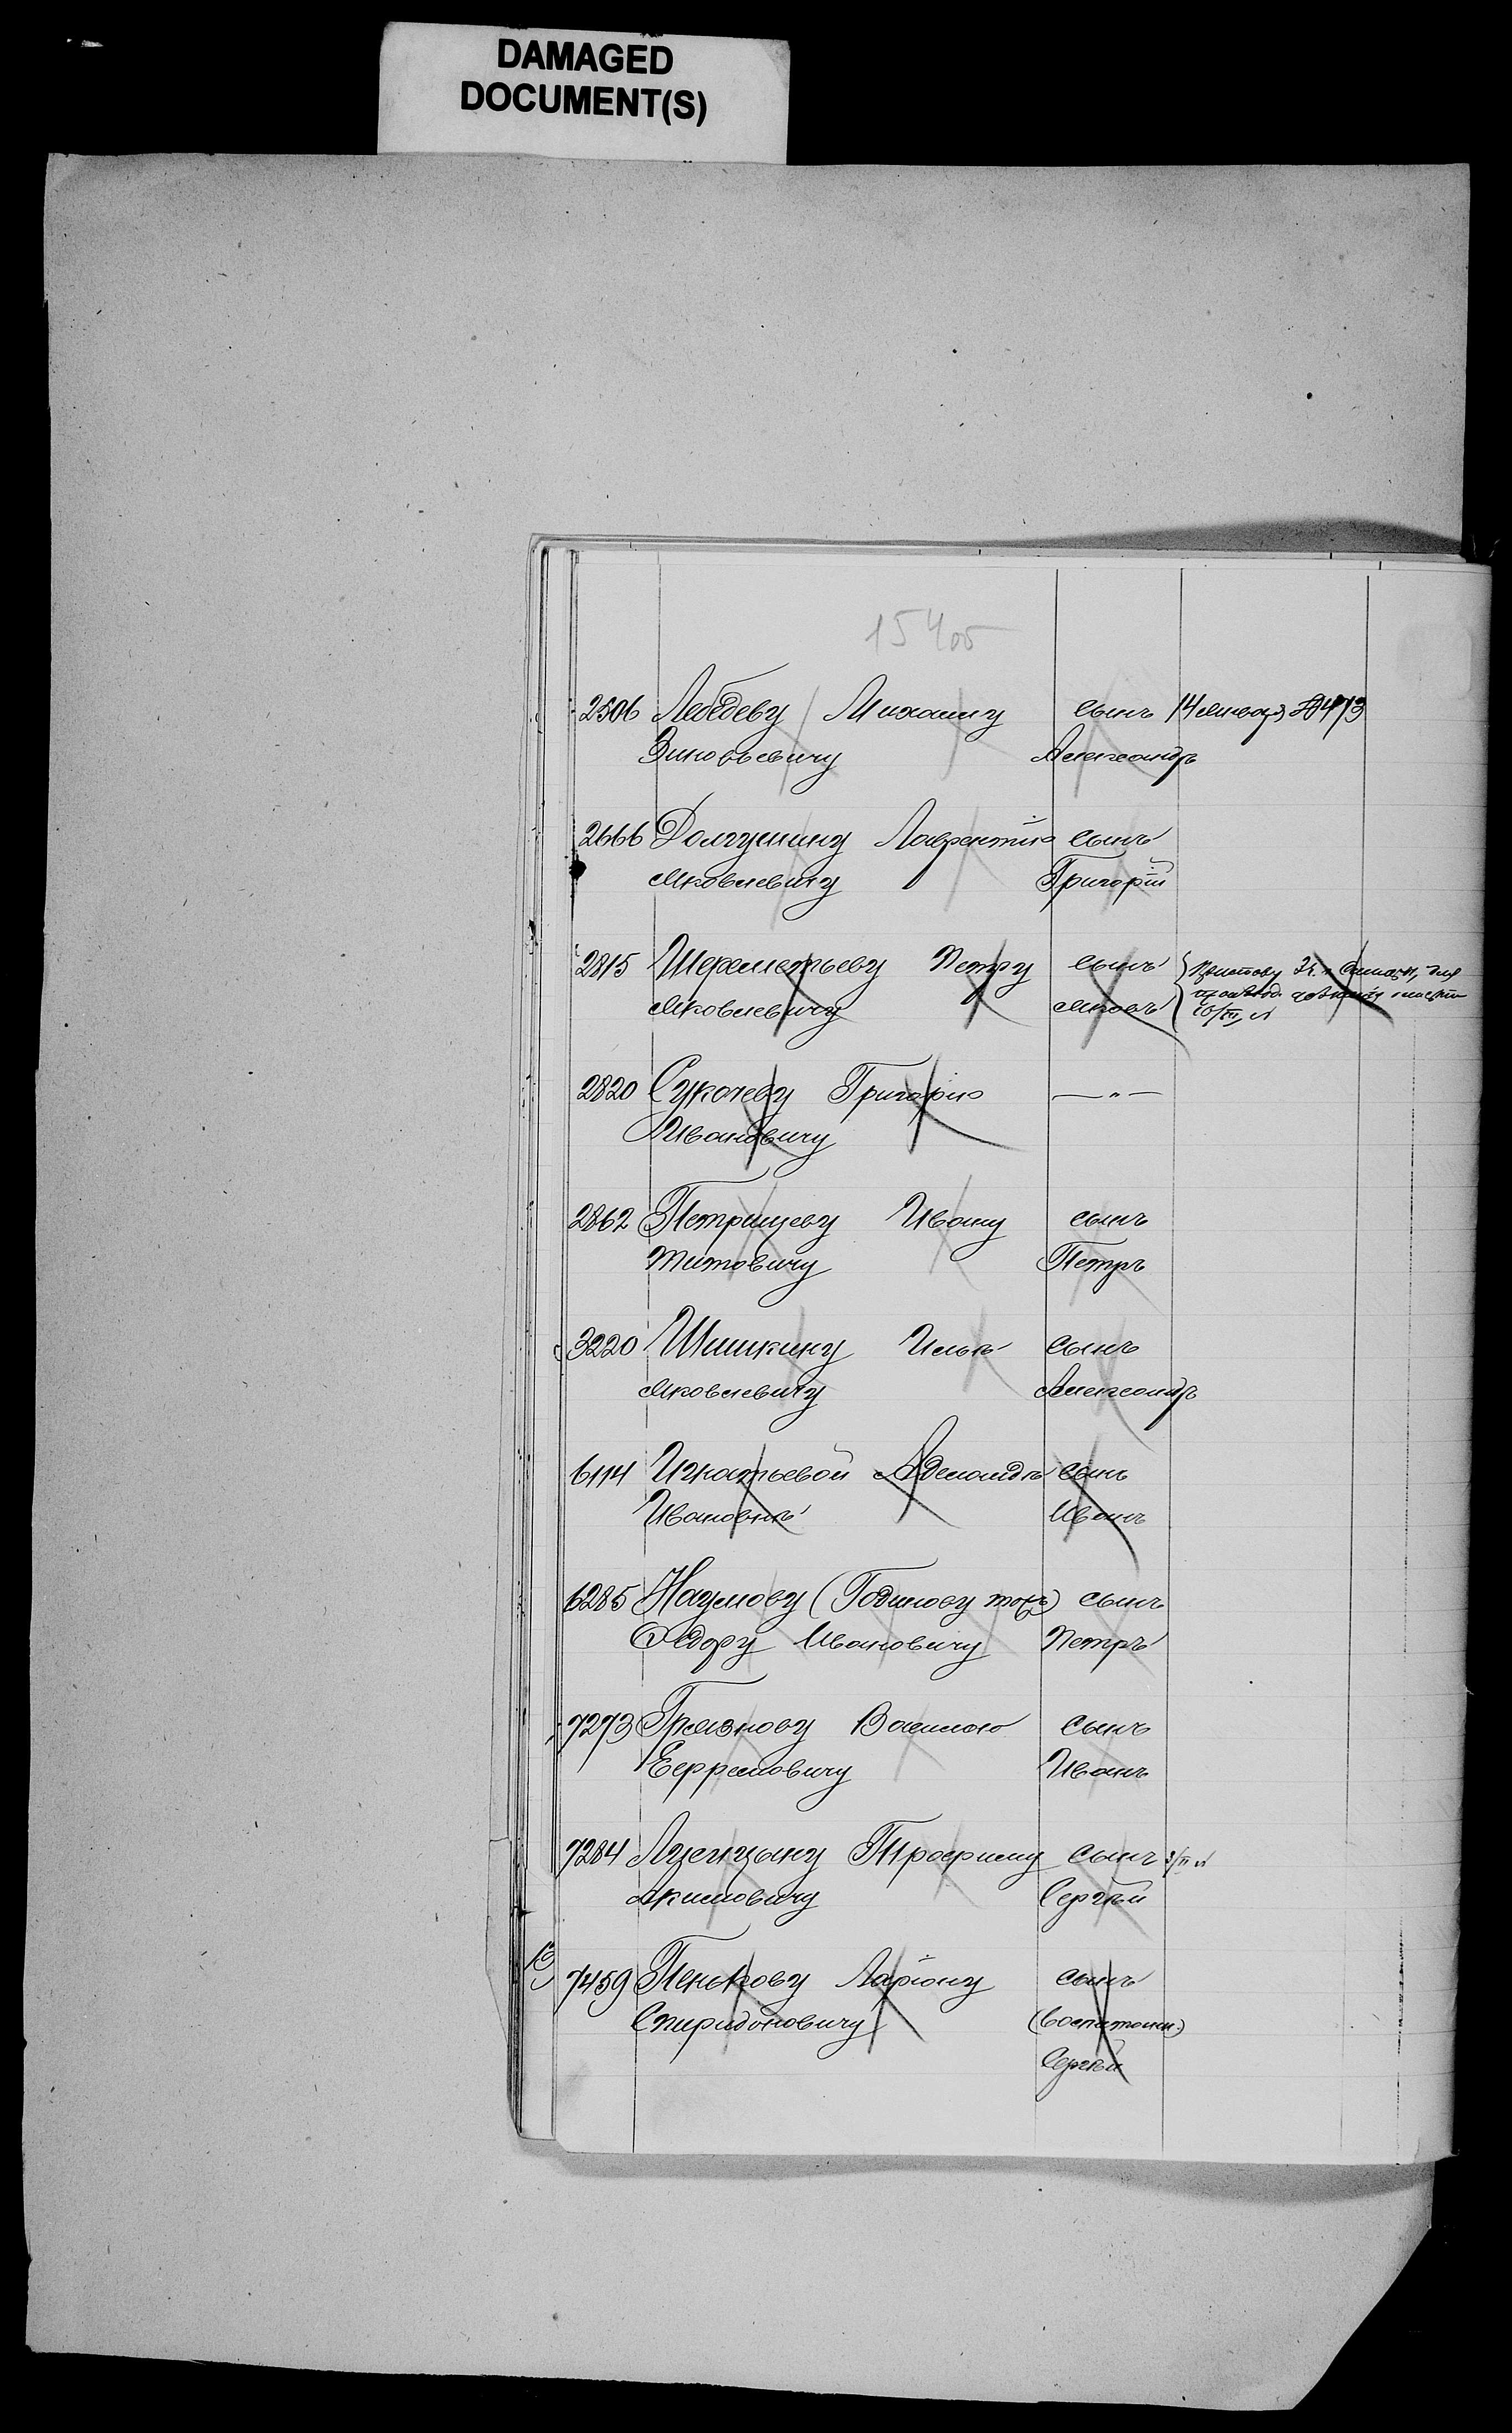 DAMAGED
DOCUMENT(S)
15405
2506 Лебедеву Михаилу сынъ 14 января № 473
Зиновьевичу Александръ
2666 Долгушину Лаврентію сынъ
Яковлевичу Григорій
2815 Шереметьеву Петру сынъ Приставу 3 ч. г. Самары, для
Яковлевичу Яковъ
2820 Сукачеву Григорію — " —
Ивановичу
2862 Петрищеву Ивану сынъ
Титовичу Петръ
3220 Шишкину Ильѣ сынъ
Яковлевичу Александръ
6114 Игнатьевой сынъ
Ивановнѣ Иванъ
6285 Наумову (Годинову тожъ) сынъ
Ѳедору Ивановичу Петръ
7273 Грязнову Василію сынъ
Ефремовичу Иванъ
7284 Трофиму сынъ 3/II
Акимовичу Сергѣй
7459 Пенькову Ларіону сынъ
Спиридоновичу (воспитан.)
Сергѣй